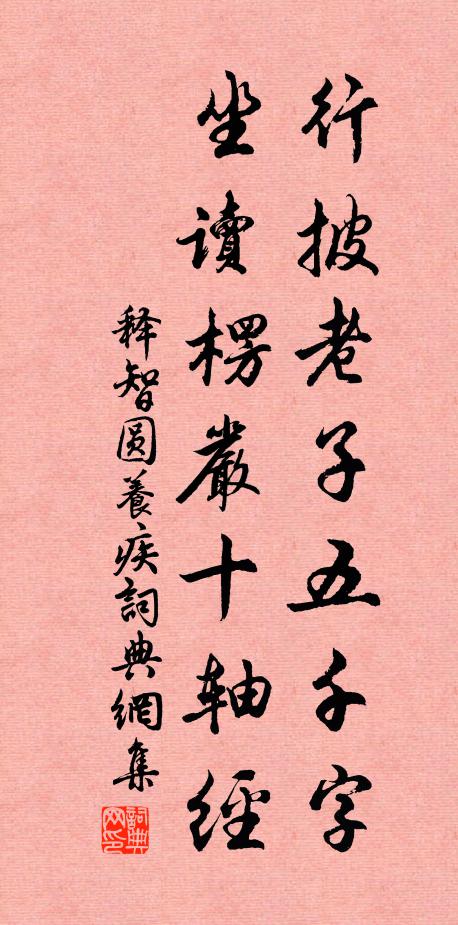 行披老子五千字
坐讀楞嚴十轴經
释智圆養疾詞典網集
詞典网印